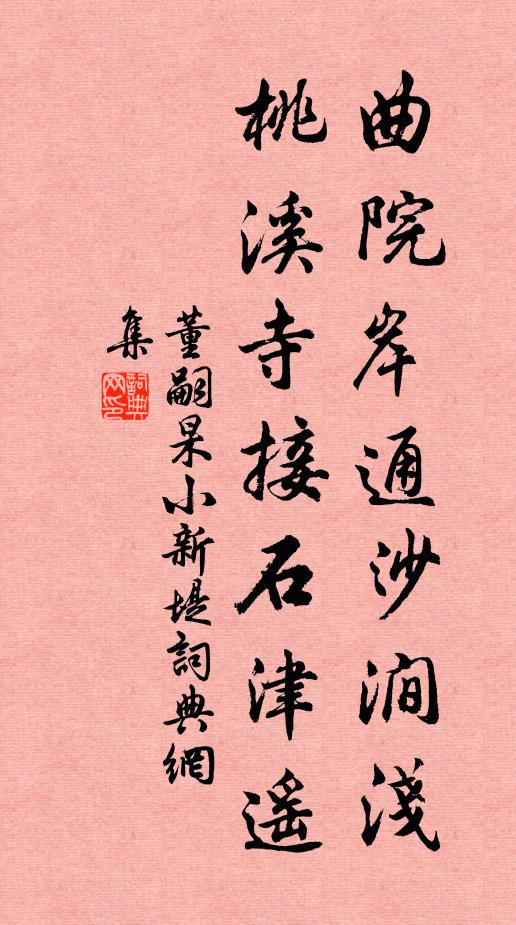 曲院岸通沙澗淺
桃溪寺接石津遥
董嗣杲小新堤詞典網
集
詞典
网印